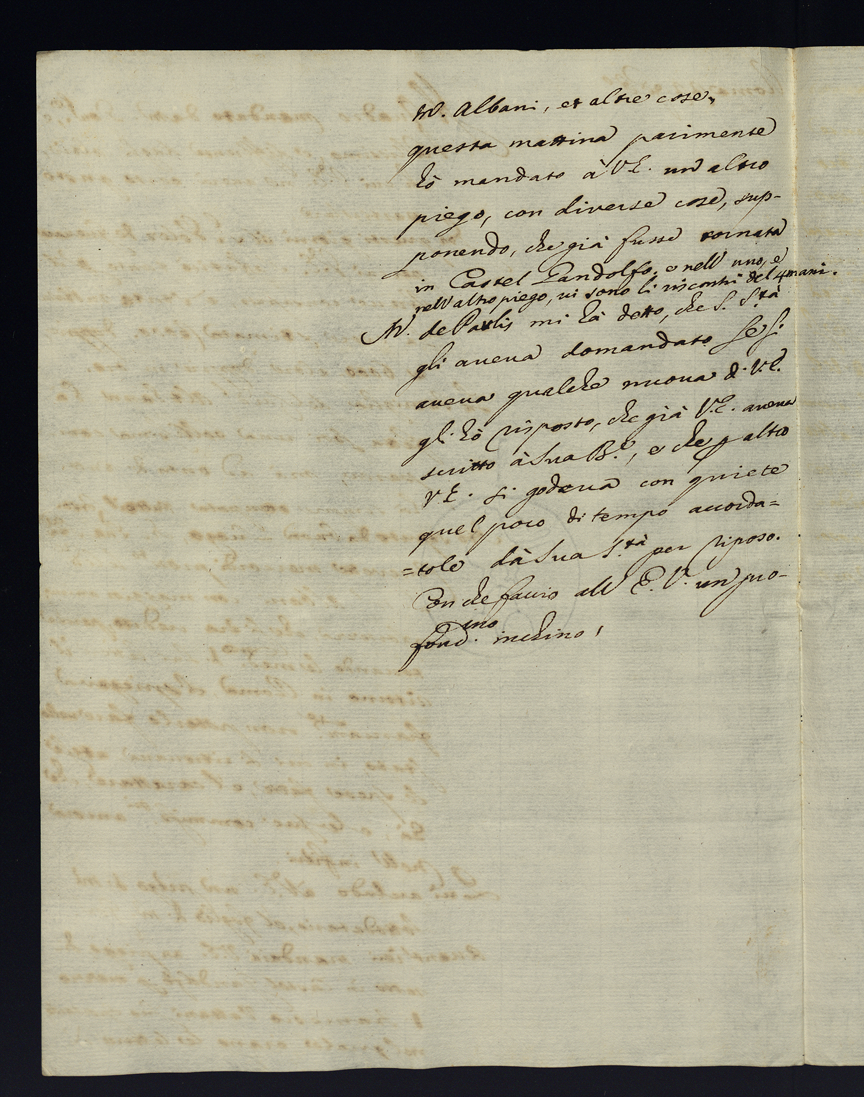 M. Albani, et altre cose,
questa mattina parimente
hò mandato à V.E. un altro
piego, con diverse cose, sup-
ponendo, che già fusse tornata
in Castel Gandolfo, e nell' uno, e
nell'altro piego, vi sono li riscontri del
M. de Paulis mi hà detto, che S. S.tà
gli aveva domandato se si
aveva qualche nuova di V.E.
gli hò risposto, che già V.E. aveva
scritto à Sua B.e, e che p altro
V.E. si godeva con quiete
quel poco di tempo accorda=
=tole dà Sua S.tà per riposo.
Con che faccio all' E.V. un pro-
fond.mo inchino,